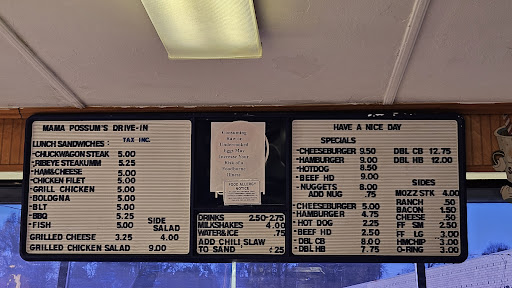 MAMA POSSUM'S DRIVE-IN
LUNCH SANDWICHES: TAX INC.
-CHUCKWAGON STEAK 5.00
-RIBEYE STEAKUMM 5.25
-HAM&CHEESE 5.00
-CHICKEN FILET 5.00
-GRILL CHICKEN 5.00
-BOLOGNA 5.00
-BLT 5.00
-BBQ 5.25
-FISH 5.00
SIDE
SALAD
GRILLED CHEESE 3.25 4.00
GRILLED CHICKEN SALAD 9.00
Consuming
Raw or
Undercooked
Eggs May
Increase Your
Risk of a
Foodborne
Illness.
FOOD ALLERGY
NOTICE
DRINKS 2.50-2.75
MILKSHAKES 4.00
WATER&ICE .75
ADD CHILI, SLAW
TO SAND ¢25
HAVE A NICE DAY
SPECIALS
-CHEESEBURGER 9.50 DBL CB 12.75
-HAMBURGER 9.00 DBL HB 12.00
-HOTDOG 8.50
-BEEF HD 9.00
-NUGGETS 8.00
ADD NUG .75
-CHEESEBURGER 5.00
-HAMBURGER 4.75
-HOT DOG 2.25
-BEEF HD 2.50
-DBL CB 8.00
-DBL HB 7.75
SIDES
MOZZ STK 4.00
RANCH .50
BACON 1.50
CHEESE .50
FF SM 2.50
FF LG 3.00
HMCHIP 3.00
O-RING 3.00